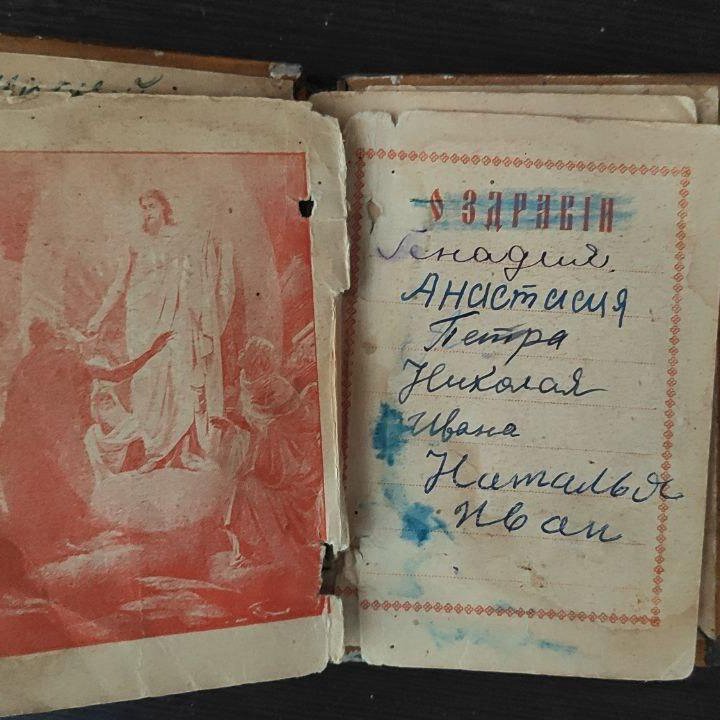 О ЗДРАВІИ
Генадия
Анастасия
Петра
Николая
Ивана
Наталья
Иван